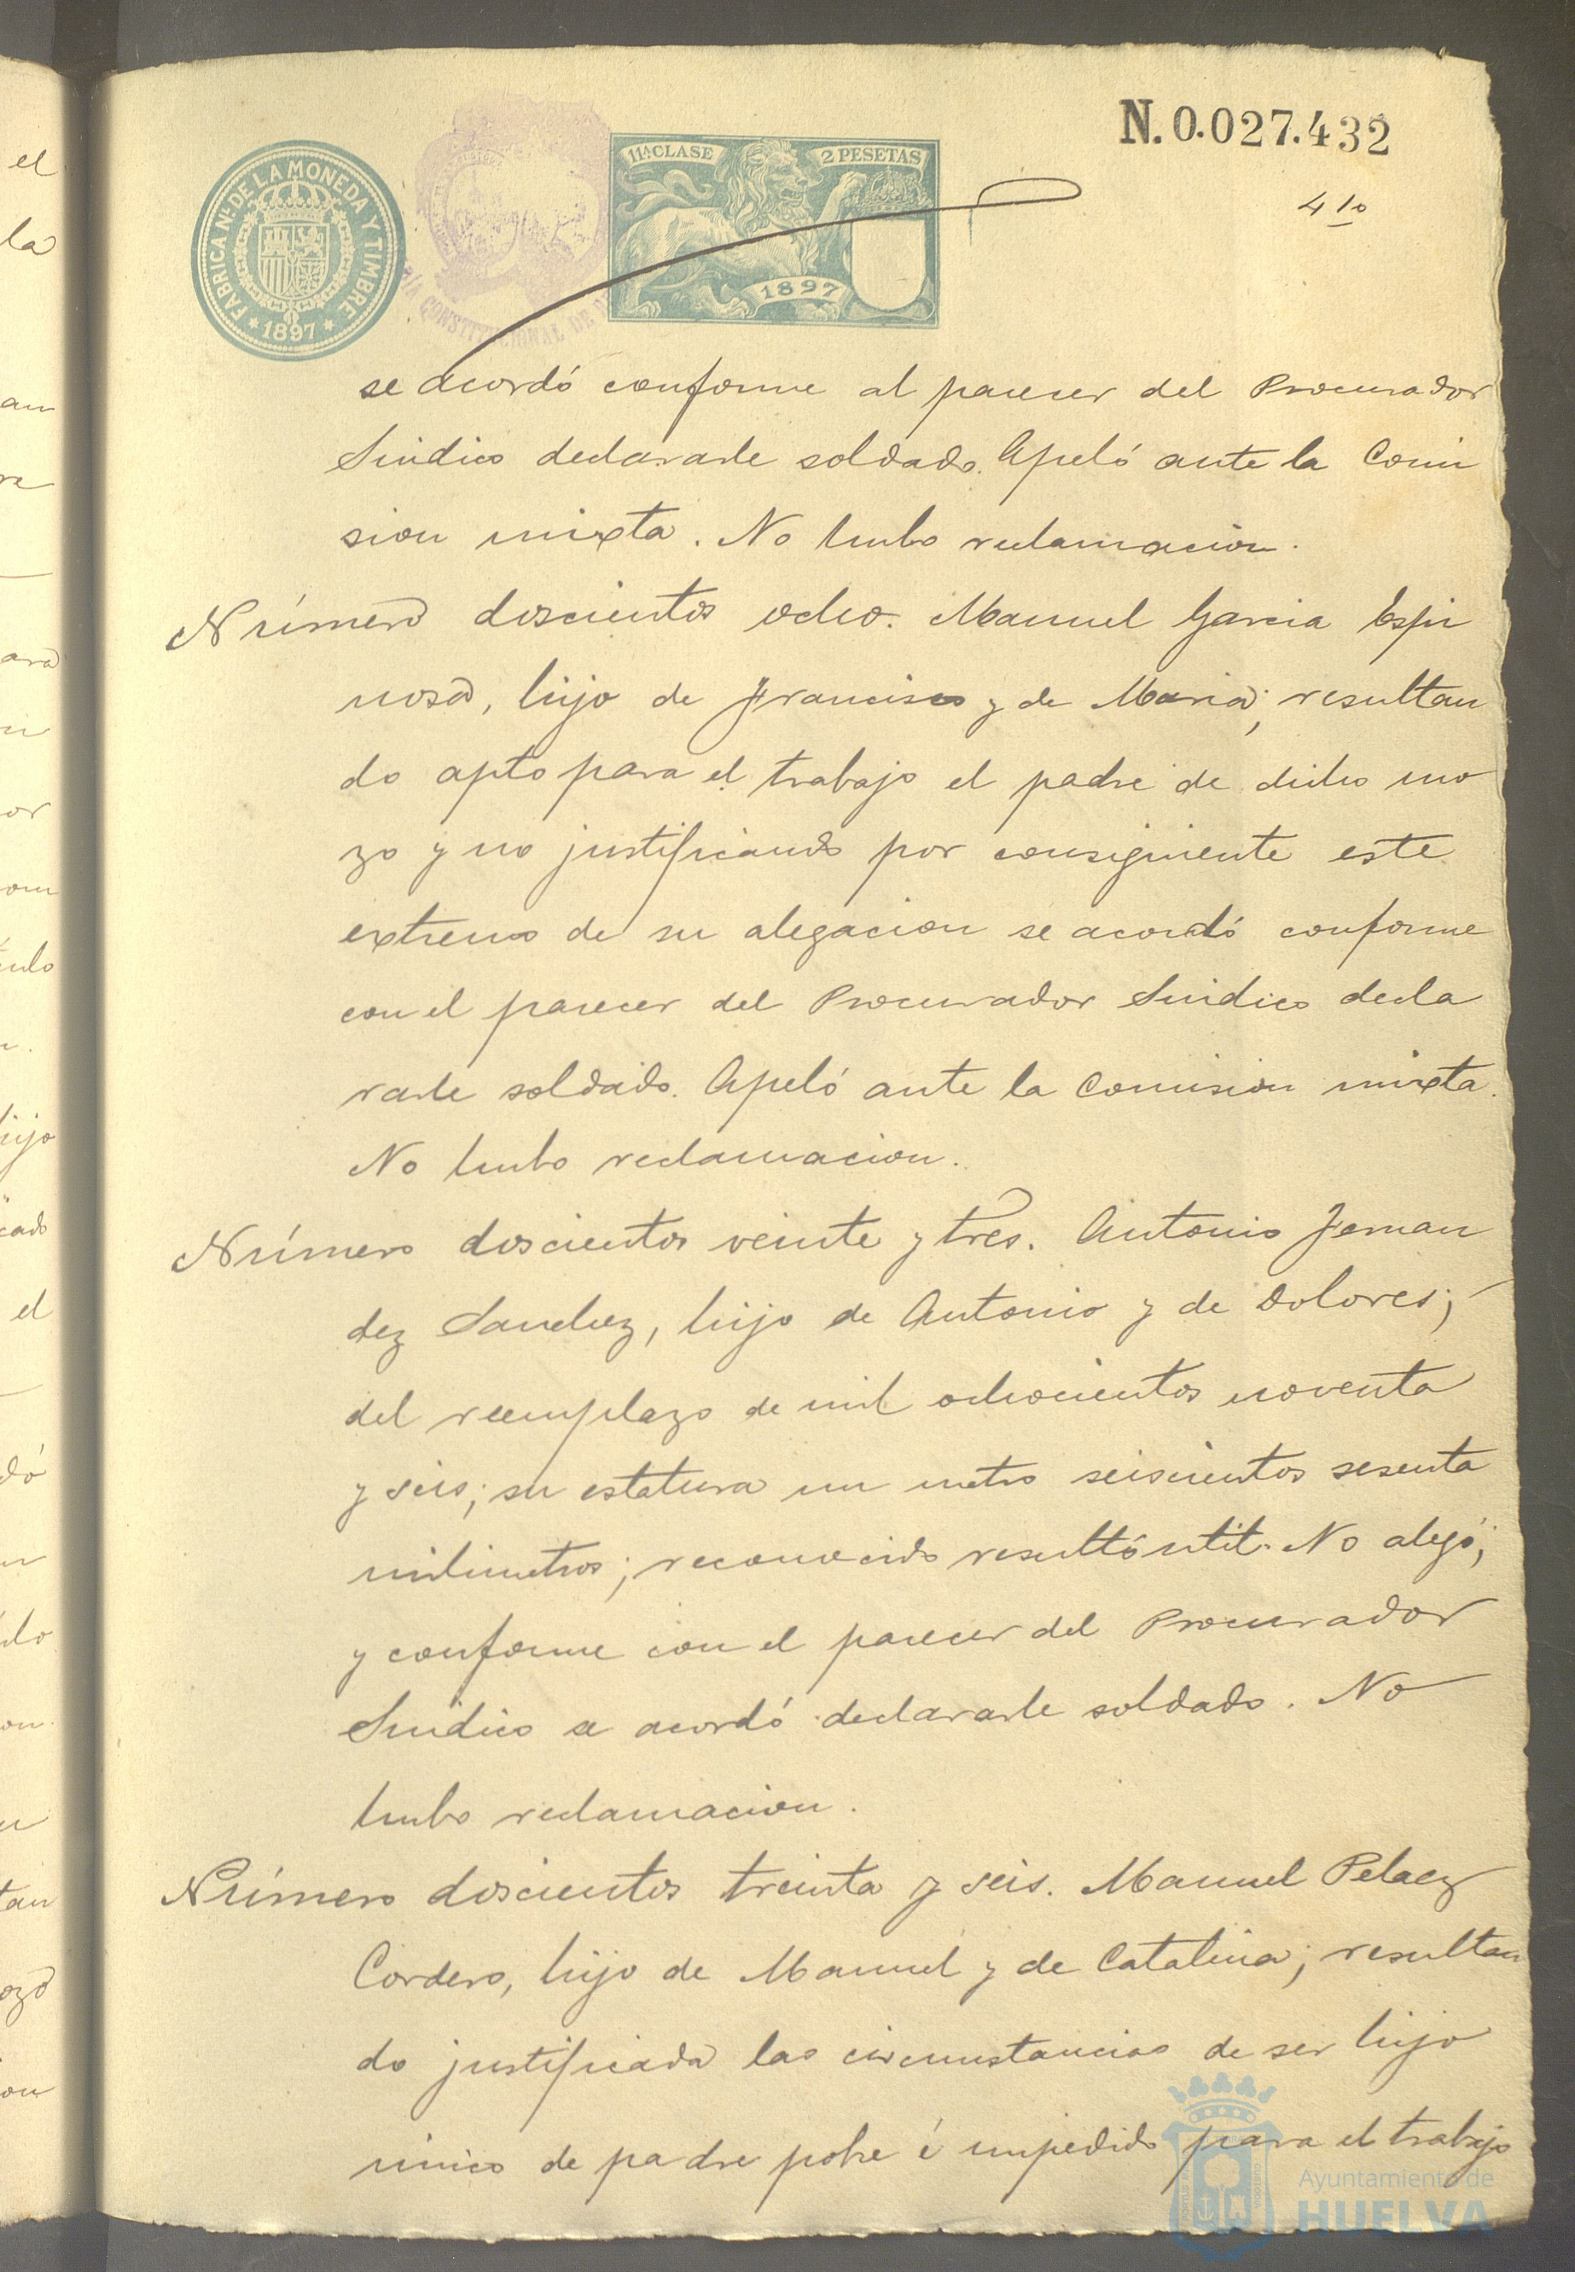 N. 0.027.432
4 1o
FABRICA Nal DE LA MONEDA Y TIMBRE
* 1897 *
11ª CLASE
2 PESETAS
1897
CONSTITUCIONAL DE
se acordó conforme al parecer del Procurador
Sindico declararle soldado. Apeló ante la Comi
sion mixta. No hubo reclamacion.
Número doscientos ocho. Manuel Garcia Espi
nosa, hijo de Francisco y de Maria; resultan
do apto para el trabajo el padre de dicho mo
zo y no justificando por consiguiente este
extremo de su alegacion se acordó conforme
con el parecer del Procurador Sindico decla
rarle soldado. Apeló ante la Comision mixta.
No hubo reclamacion.
Número doscientos veinte y tres. Antonio Fernan
dez Sanchez, hijo de Antonio y de Dolores;
del reemplazo de mil ochocientos noventa
y seis; su estatura un metro seiscientos sesenta
milimetros; reconocido resultó util. No alegó;
y conforme con el parecer del Procurador
Sindico se acordó declararle soldado. No
hubo reclamacion.
Número doscientos treinta y seis. Manuel Pelaez
Cordero, hijo de Manuel y de Catalina; resultan
do justificada las circunstancias de ser hijo
único de padre pobre é impedido para el trabajo
Ayuntamiento de
HUELVA